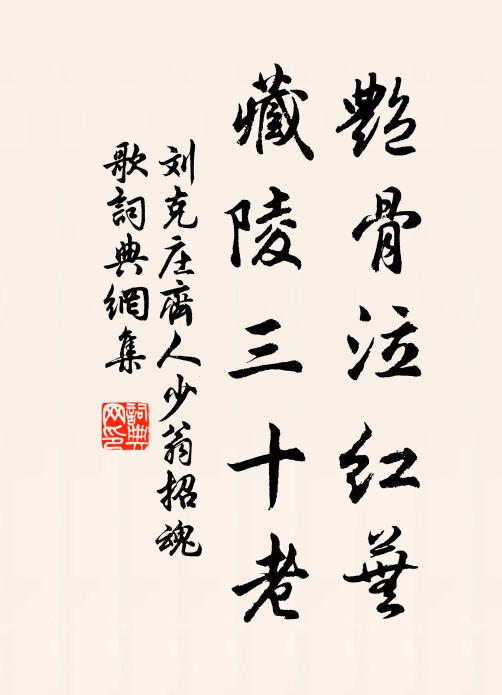 艷骨泣紅蕪
藏陵三十老
刘克庄齊人少翁招魂
歌詞典網集
詞典网印